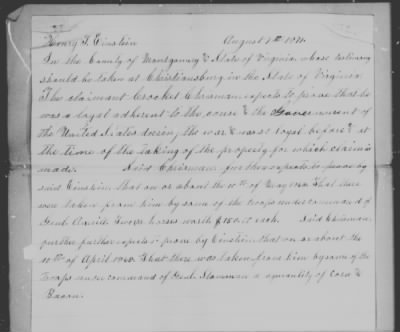 Henry F. Einstein August 7th 1871.
In the County of Montgomery & State of Virginia whose testimony
should be taken at Christiansburg in the State of Virginia
The claimant Crocket Chrisman expects to prove that he
was a loyal adherent to the cause & the Government of
the United States during the war & was loyal before & at
the time of the taking of the property for which claim is
made. Said Chrisman further expects to prove by
said Einstein that on or about the 10th of May 1864 that there
were taken from him by some of the troops under command of
Genl. two horses worth $150.00 each. Said Chrisman
further expects prove by Einstein that on or about the
10th of April 1865 that there was taken from him by some of the
Troops under command of Genl. Stoneman a quantity of Corn &
Bacon.